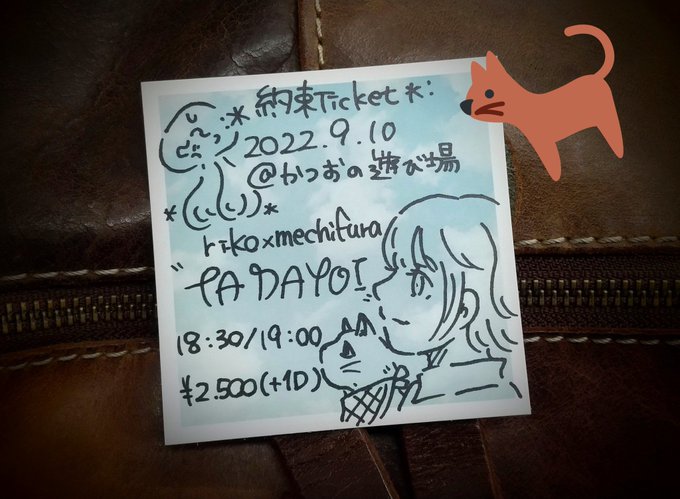 :*約束Ticket*:
2022.9.10
@かつおの遊び場
riko×mechifura
18:30/19:00
¥2.500(+1D)